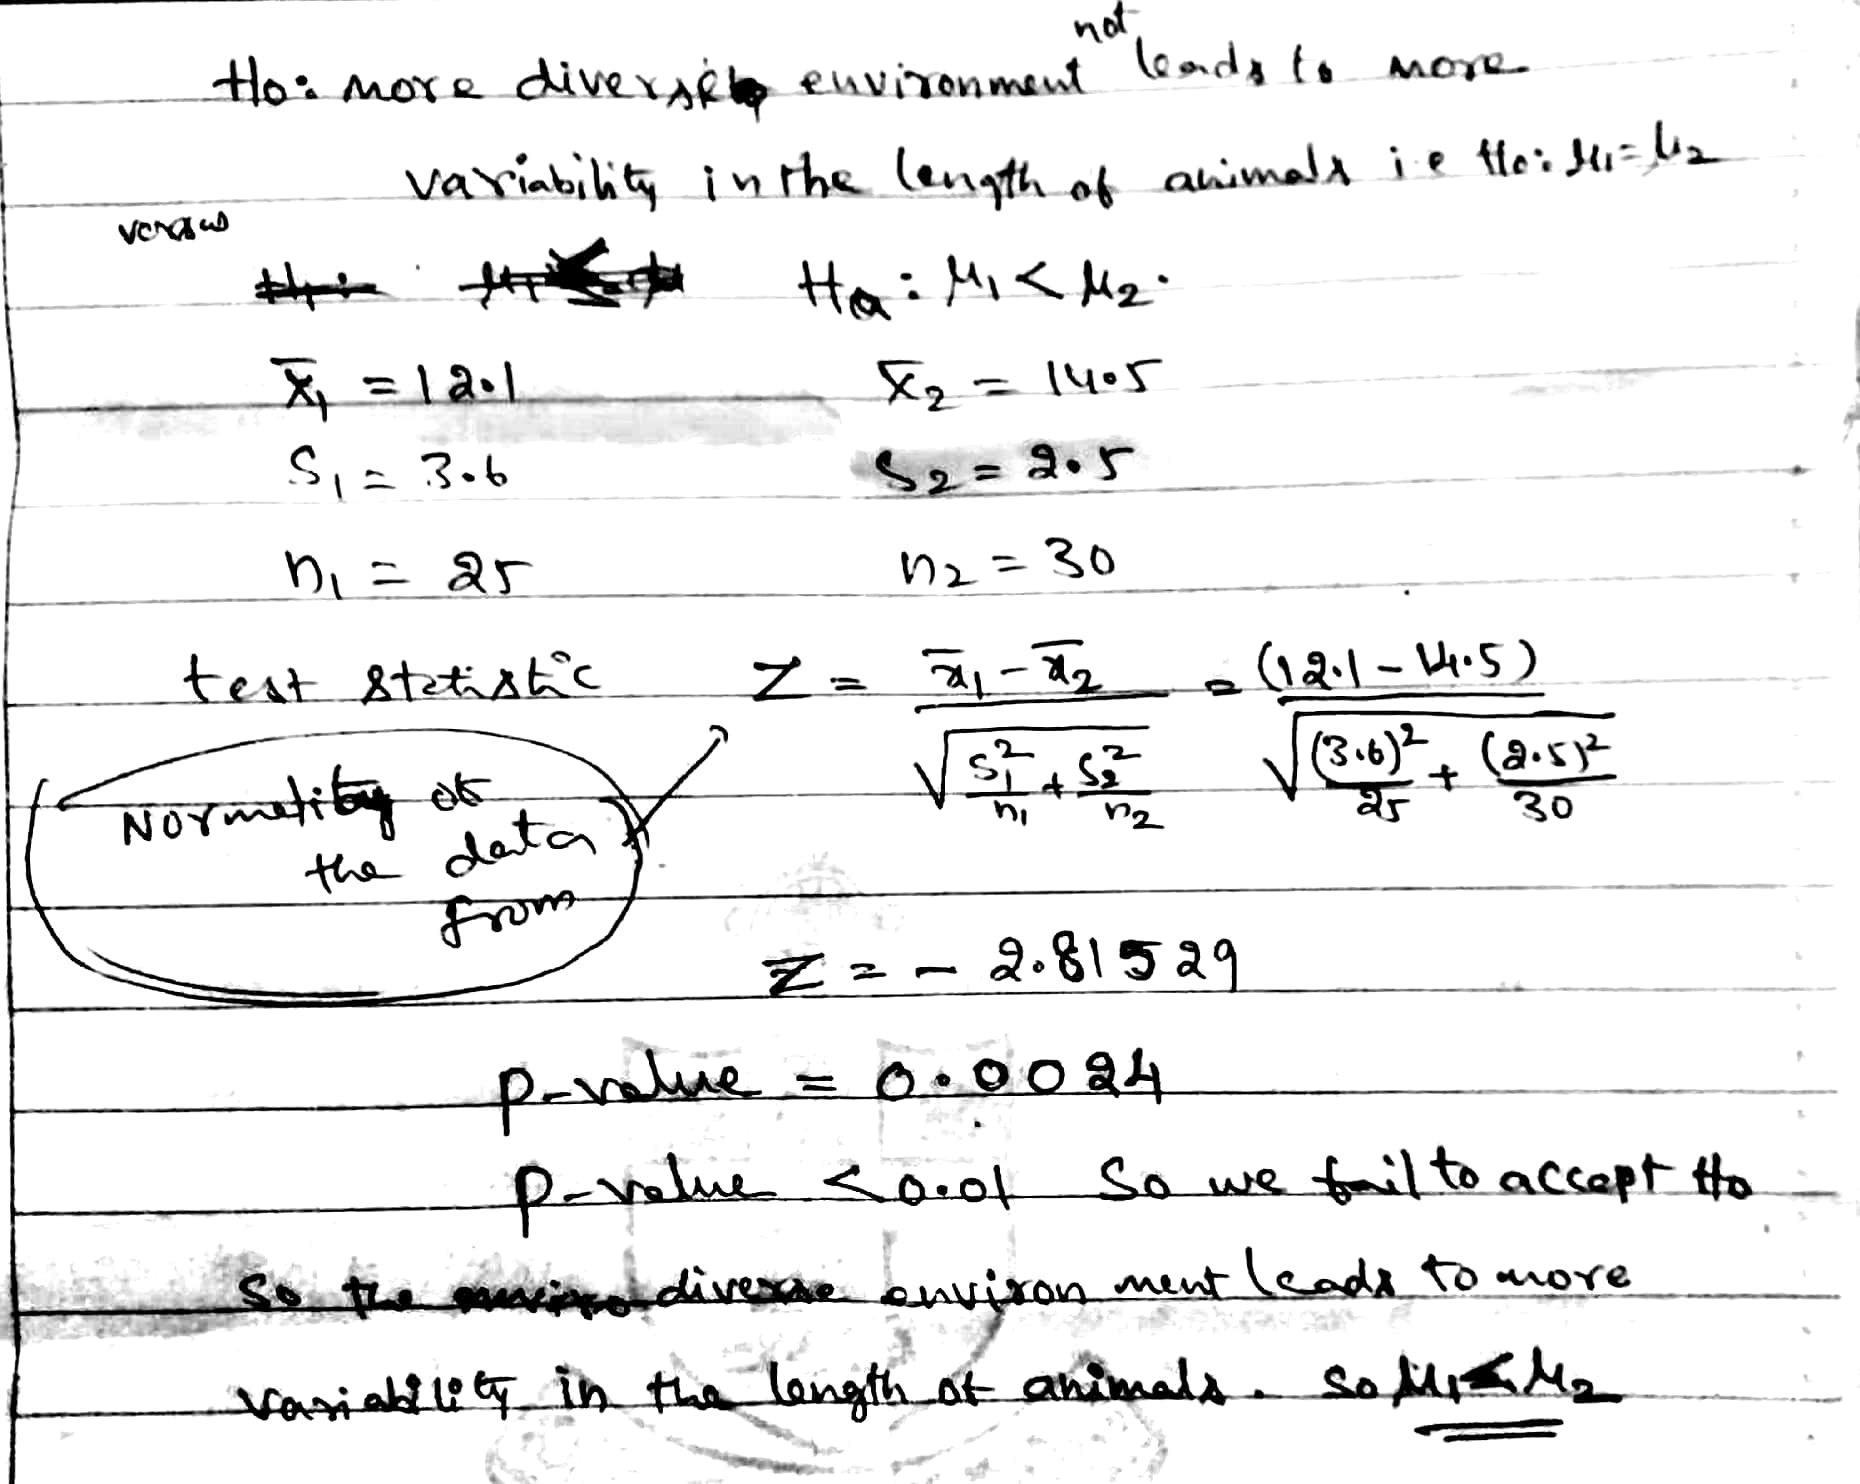 not
Ho: more diverse environment leads to more
variability in the length of animals i.e Ho: μ1 = μ2
versus
Ha: μ1 < μ2.
x̄1 = 12.1 x̄2 = 14.5
S1 = 3.6 S2 = 2.5
n1 = 25 n2 = 30
test statistic Z = x̄1 - x̄2 / √(s1²/n1 + s2²/n2) = (12.1 - 14.5) / √((3.6)²/25 + (2.5)²/30)
Normality of
the data
from
Z = - 2.81529
p-value = 0.0024
p-value < 0.01 So we fail to accept Ho
So the diverse environment leads to more
variability in the length of animals. So μ1 < μ2